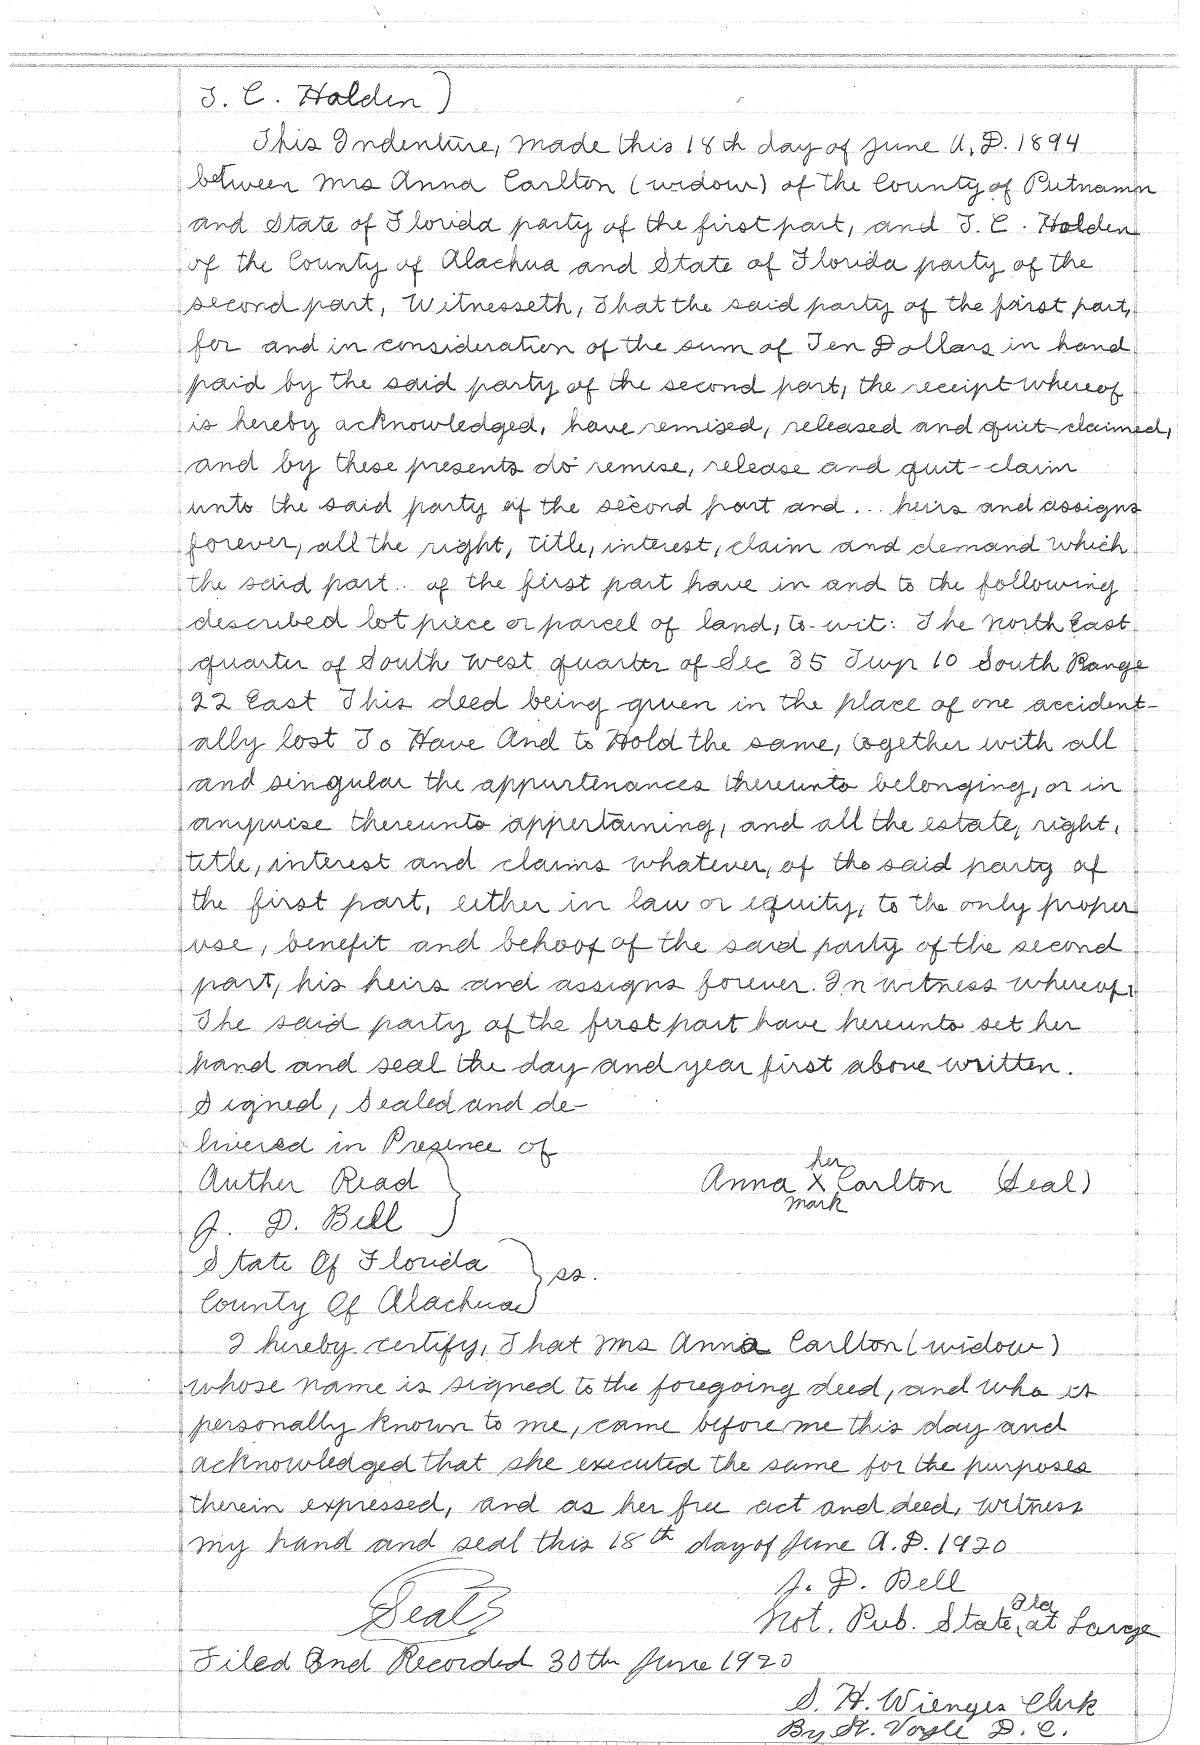 T. C. Holden )
This Indenture, made this 18th day of June A, D. 1894
between Mrs Anna Carlton (widow) of the County of Putnamn
and State of Florida party of the first part, and T. C. Holden
of the County of Alachua and State of Florida party of the
second part, Witnesseth, That the said party of the first part,
for and in consideration of the sum of Ten Dollars in hand
paid by the said party of the second part, the receipt whereof
is hereby acknowledged, have remised, released and quit-claimed,
and by these presents do remise, release and quit-claim
unto the said party of the second part and ... heirs and assigns
forever, all the right, title, interest, claim and demand which
the said part.. of the first part have in and to the following
described lot piece or parcel of land, to-wit: The North East
quarter of South West quarter of Sec 35 Twp 10 South Range
22 East This deed being given in the place of one accident-
ally lost To Have And to Hold the same, together with all
and singular the appurtenances thereunto belonging, or in
anywise thereunto appertaining, and all the estate, right,
title, interest and claims whatever, of the said party of
the first part, either in law or equity, to the only proper
use, benefit and behoof of the said party of the second
part, his heirs and assigns forever. In witness whereof,
The said party of the first part have hereunto set her
hand and seal the day and year first above written.
Signed, Sealed and de-
livered in Presence of
her
Auther Read } Anna X Carlton (Seal)
mark
J. D. Bell
State Of Florida } ss.
County Of Alachua
I hereby certify, That Mrs Anna Carlton (widow)
whose name is signed to the foregoing deed, and who is
personally known to me, came before me this day and
acknowledged that she executed the same for the purposes
therein expressed, and as her free act and deed, witness
my hand and seal this 18th day of June A.D. 1920
J. D. Bell
Seal
Not. Pub. State Fla at Large
Filed And Recorded 30th June 1920
S. H. Wienges Clerk
By St. Vogle D. C.